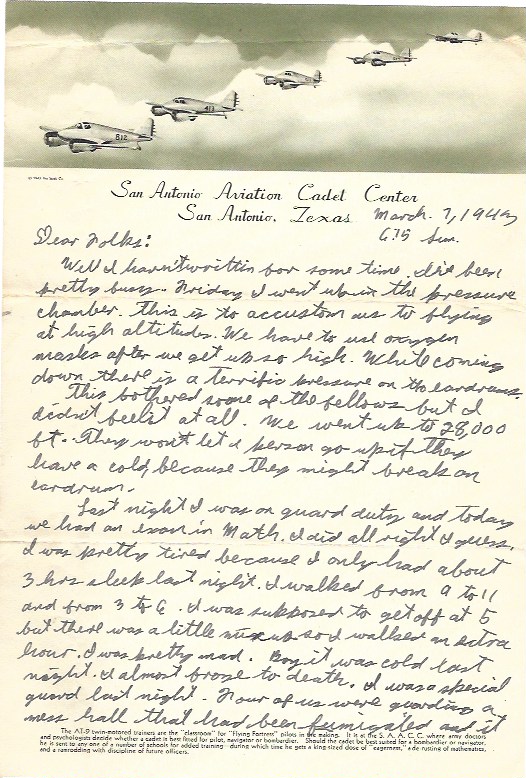 612
413
San Antonio Aviation Cadet Center
San Antonio, Texas
March. 7, 1943
6:15 Sun.
Dear Folks:
Well I haven't written for some time. I've been
pretty busy. Friday I went up in the pressure
chamber. This is to accustom us to flying
at high altitudes. We have to use oxygen
masks after we get up so high. While coming
down there is a terrific pressure on the eardrums.
This bothered some of the fellows but I
didn't feel it at all. We went up to 28,000
ft. They won't let a person go up if they
have a cold, because they might break an
eardrum.
Last night I was on guard duty and today
we had an exam in Math. I did all right I guess.
I was pretty tired because I only had about
3 hrs sleep last night. I walked from 9 to 11
and from 3 to 6. I was supposed to get off at 5
but there was a little mix up so I walked an extra
hour. I was pretty mad. Boy it was cold last
night. I almost froze to death. I was a special
guard last night. Four of us were guarding a
mess hall that had been fumigated and it
The AT-9 twin-motored trainers are the "classroom" for "Flying Fortress" pilots in the making. It is at the S. A. A. C. C. where army doctors
and psychologists decide whether a cadet is best fitted for pilot, navigator or bombardier. Should the cadet be best suited for a bombardier or navigator,
he is sent to any one of a number of schools for added training—during which time he gets a king-sized dose of "eagerness," a rusting of mathematics,
and a ramrodding with discipline of future officers.